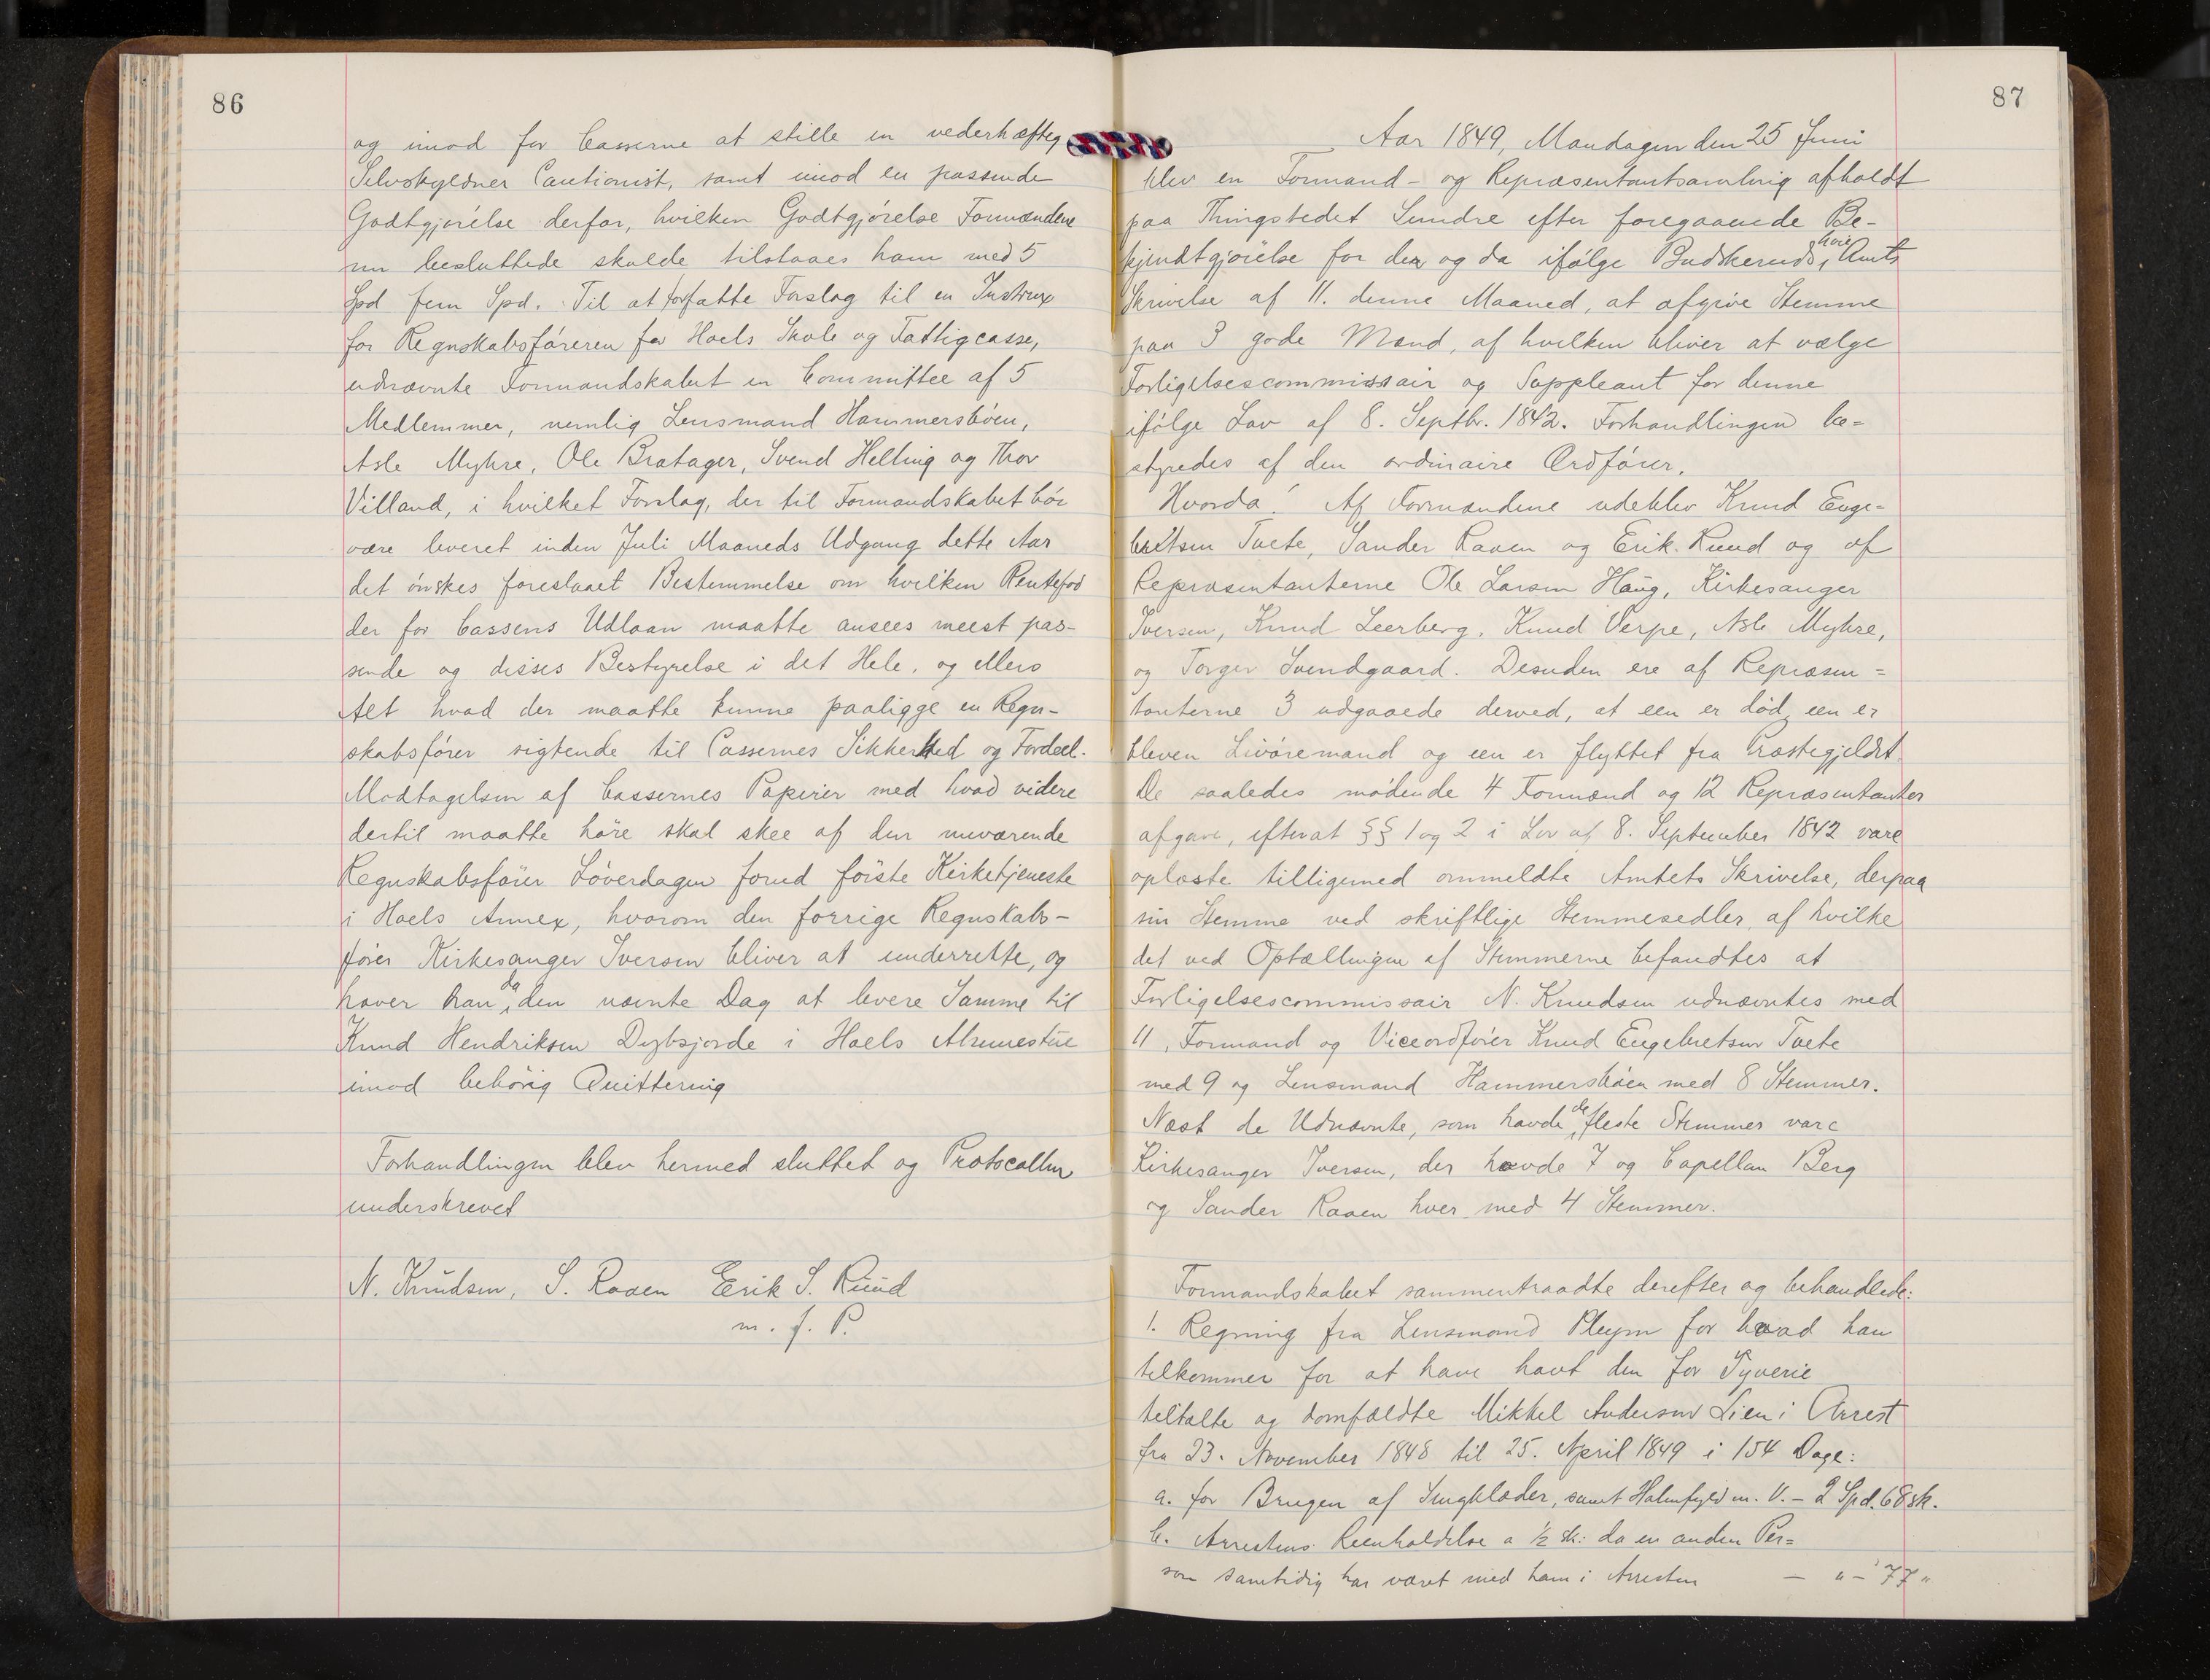 86
og imod for Casserne at stille en vederhæftig
Selvskyldner Cautionist, samt imod en passende
Godtgjörelse derfor, hvilken Godtgjörelse Formændene
nu besluttede skulde tilstaaes ham med 5
Spd fem Spd. Til at forfatte Forslag til en Instrux
for Regnskabsföreren for Hoels Skole og Fattigcasse,
udnævnte Formandskabet en Committee af 5
Medlemmer, nemlig Lensmand Hammersböen,
Asle Myhre, Ole Bratager, Svend Helling og Thor
Villand, i hvilket Forslag, der til Formandskabet bör
være leveret inden Juli Maaneds Udgang dette Aar
det önskes foreslaaet Bestemmelse om hvilken Rentefod
der for Cassens Udlaan maatte ansees meest pas-
sende og disses Bestyrelse i det Hele, og ellers
Alt hvad der maatte kunne paaligge en Regn-
skabsförer sigtende til Cassernes Sikkerhed og Fordeel.
Modtagelsen af Cassernes Papirer med hvad videre
dertil maatte höre skal skee af den nuværende
Regnskabsförer Löverdagen forud förste Kirketjeneste
i Hoels Annex, hvorom den forrige Regnskabs-
förer Kirkesanger Iversen bliver at underrette, og
haver han da den nævnte Dag at levere Samme til
Knud Hendriksen Dybsjorde i Hoels Almuestue
imod behörig Quittering
Forhandlingen blev hermed sluttet og Protocollen
underskrevet
N. Knudsen, S. Raaen Erik S. Ruud
m. f. P.
87
Aar 1849, Mandagen den 25 Juni
blev en Formand- og Repræsentantsamling afholdt
paa Thingstedet Sundre efter foregaaende Be-
kjendtgjörelse for der og da ifölge Budskeruds höie Amts
Skrivelse af 11. denne Maaned, at afgive Stemme
paa 3 gode Mænd, af hvilken bliver at vælge
Forligelsescommissair og Suppleant for denne
ifölge Lov af 8. Septbr. 1842. Forhandlingen be=
styredes af den ordinaire Ordförer.
Hvorda! Af Formændene udeblev Knud Enge=
bretsen Tvete, Sander Raaen og Erik Ruud og af
Repræsentanterne Ole Larsen Haug, Kirkesanger
Iversen, Knud Leerberg, Knud Verpe, Asle Myhre,
og Torger Svendgaard. Desuden ere af Repræsen=
tanterne 3 udgaaede derved, at een er död, een er
bleven Livöremand og een er flyttet fra Præstegjeldet.
De saaledes mödende 4 Formænd og 12 Repræsentanter
afgave, efterat §§ 1 og 2 i Lov af 8. September 1842 vare
oplæste tilligemed ommeldte Amtets Skrivelse, derpaa
sin Stemme ved skriftlige Stemmesedler, af hvilke
det ved Optællingen af Stemmerne befandtes at
Forligelsescommissair N. Knudsen udnævntes med
11, Formand og Viceordförer Knud Engebretsen Tvete
med 9 og Lensmand Hammersböen med 8 Stemmer.
Næst de Udnævnte, som havde de fleste Stemmer vare
Kirkesanger Iversen, der havde 7 og Capellan Berg
og Sander Raaen hver med 4 Stemmer.
Formandskabet sammentraadte derefter og behandlede:
1. Regning fra Lensmand Pleym for hvad han
tilkommer for at have havt den for Tyverie
tiltalte og domfældte Mikkel Andersen Lien i Arrest
fra 23. November 1848 til 25. April 1849 i 154 Dage:
a. for Brugen af Sengklæder, samt Halmfyld m. V. - 2 Spd. 68 sk.
b. Arrestens Reenholdelse a ½ sk: da en anden Per=
son samtidig har været med ham i Arresten — " - 77 "